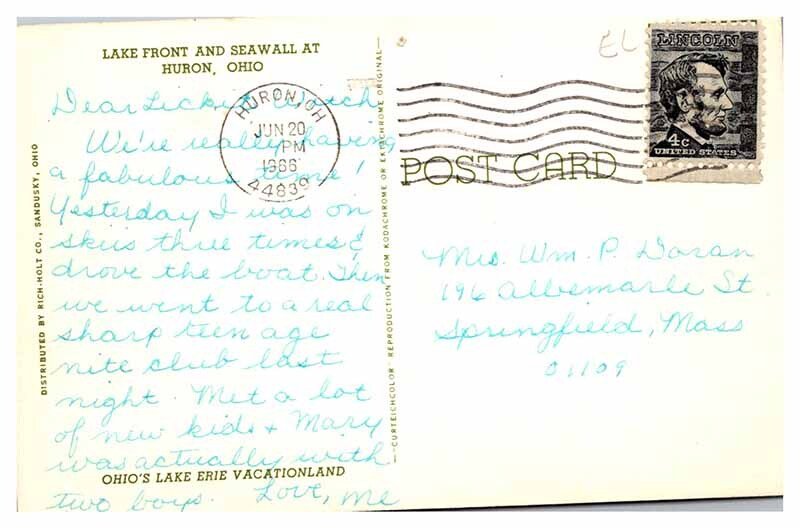 LAKE FRONT AND SEAWALL AT
HURON, OHIO
Dear
We're really having
a fabulous time!
Yesterday I was on
skiis three times &
drove the boat. Then
we went to a real
sharp teen age
nite club last
night. Met a lot
of new kids & Mary
was actually with
two boys. Love, Me
OHIO'S LAKE ERIE VACATIONLAND
DISTRIBUTED BY RICH-HOLT CO., SANDUSKY, OHIO
HURON, OH
JUN 20
PM
1966
44839
CURTEICHCOLOR® REPRODUCTION FROM KODACHROME OR EKTACHROME ORIGINAL
EL
LINCOLN
4c
UNITED STATES
POST CARD
Mrs. Wm. P. Doran
196 Albemarle St.
Springfield, Mass
01109